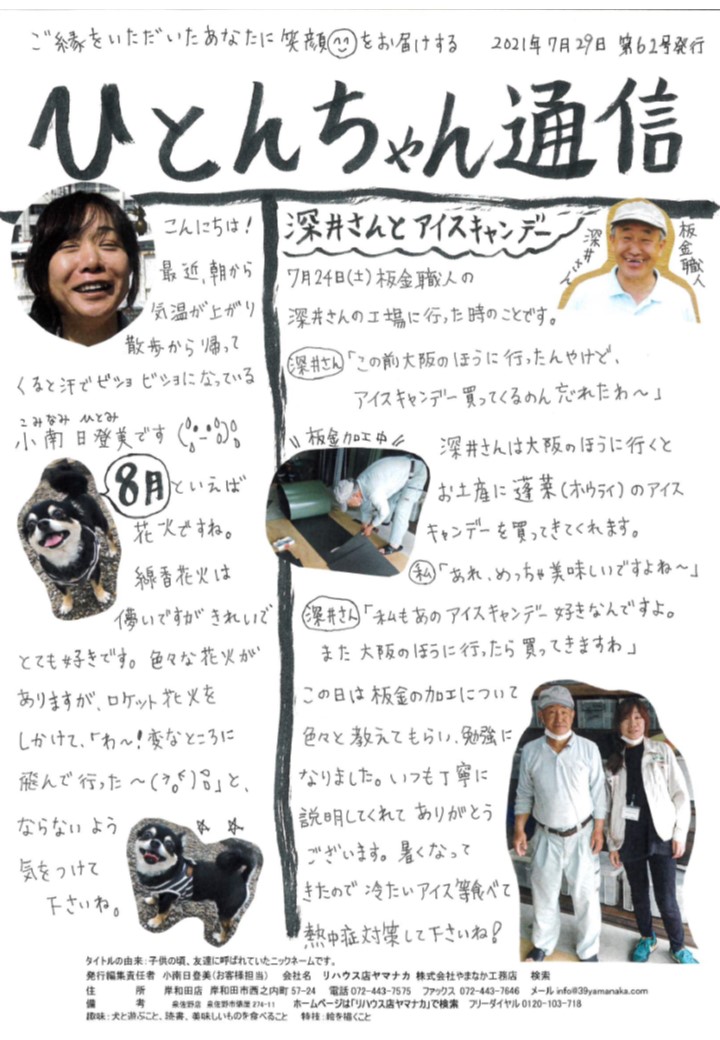 ご縁をいただいたあなたに笑顔をお届けする 2021年7月29日 第62号発行
ひとんちゃん通信
こんにちは！
最近、朝から
気温が上がり
散歩から帰って
くると汗でビショビショになっている
こみなみ ひとみ
小南日登美です
8月といえば
花火ですね。
線香花火は
儚いですがきれいで
とても好きです。色々な花火が
ありますが、ロケット花火を
しかけて、「わ～！変なところに
飛んで行った～」と、
ならないよう
気をつけて
下さいね。
深井さんとアイスキャンデー
板金職人
深井さん
7月24日(土)板金職人の
深井さんの工場に行った時のことです。
深井さん「この前大阪のほうに行ったんやけど、
アイスキャンデー買ってくるのん忘れたわ～」
\\板金加工中//
深井さんは大阪のほうに行くと
お土産に蓬莱(ホウライ)のアイス
キャンデーを買ってきてくれます。
私「あれ、めっちゃ美味しいですよね～」
深井さん「私もあのアイスキャンデー好きなんですよ。
また大阪のほうに行ったら買ってきますわ」
この日は板金の加工について
色々と教えてもらい、勉強に
なりました。いつも丁寧に
説明してくれてありがとう
ございます。暑くなって
きたので冷たいアイス等食べて
熱中症対策して下さいね！
タイトルの由来：子供の頃、友達に呼ばれていたニックネームです。
発行編集責任者 小南日登美(お客様担当) 会社名 リハウス店ヤマナカ 株式会社やまなか工務店 検索
住 所 岸和田店 岸和田市西之内町57-24 電話 072-443-7575 ファックス 072-443-7646 メール info@39yamanaka.com
備 考 泉佐野店 泉佐野市俵屋274-11 ホームページは「リハウス店ヤマナカ」で検索 フリーダイヤル 0120-103-718
趣味：犬と遊ぶこと、読書、美味しいものを食べること 特技：絵を描くこと